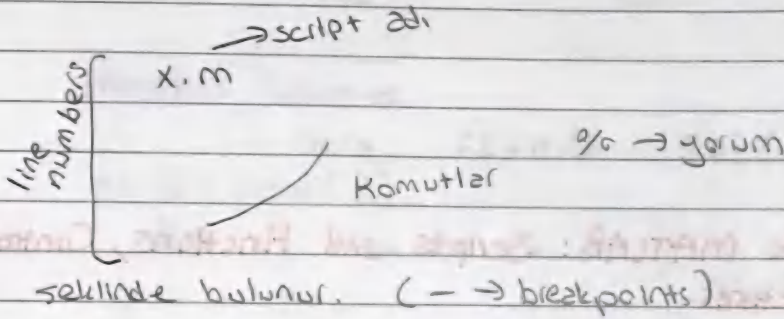 → script adı
x.m
line numbers
% → yorum
Komutlar
şeklinde bulunur. (- → breakpoints)